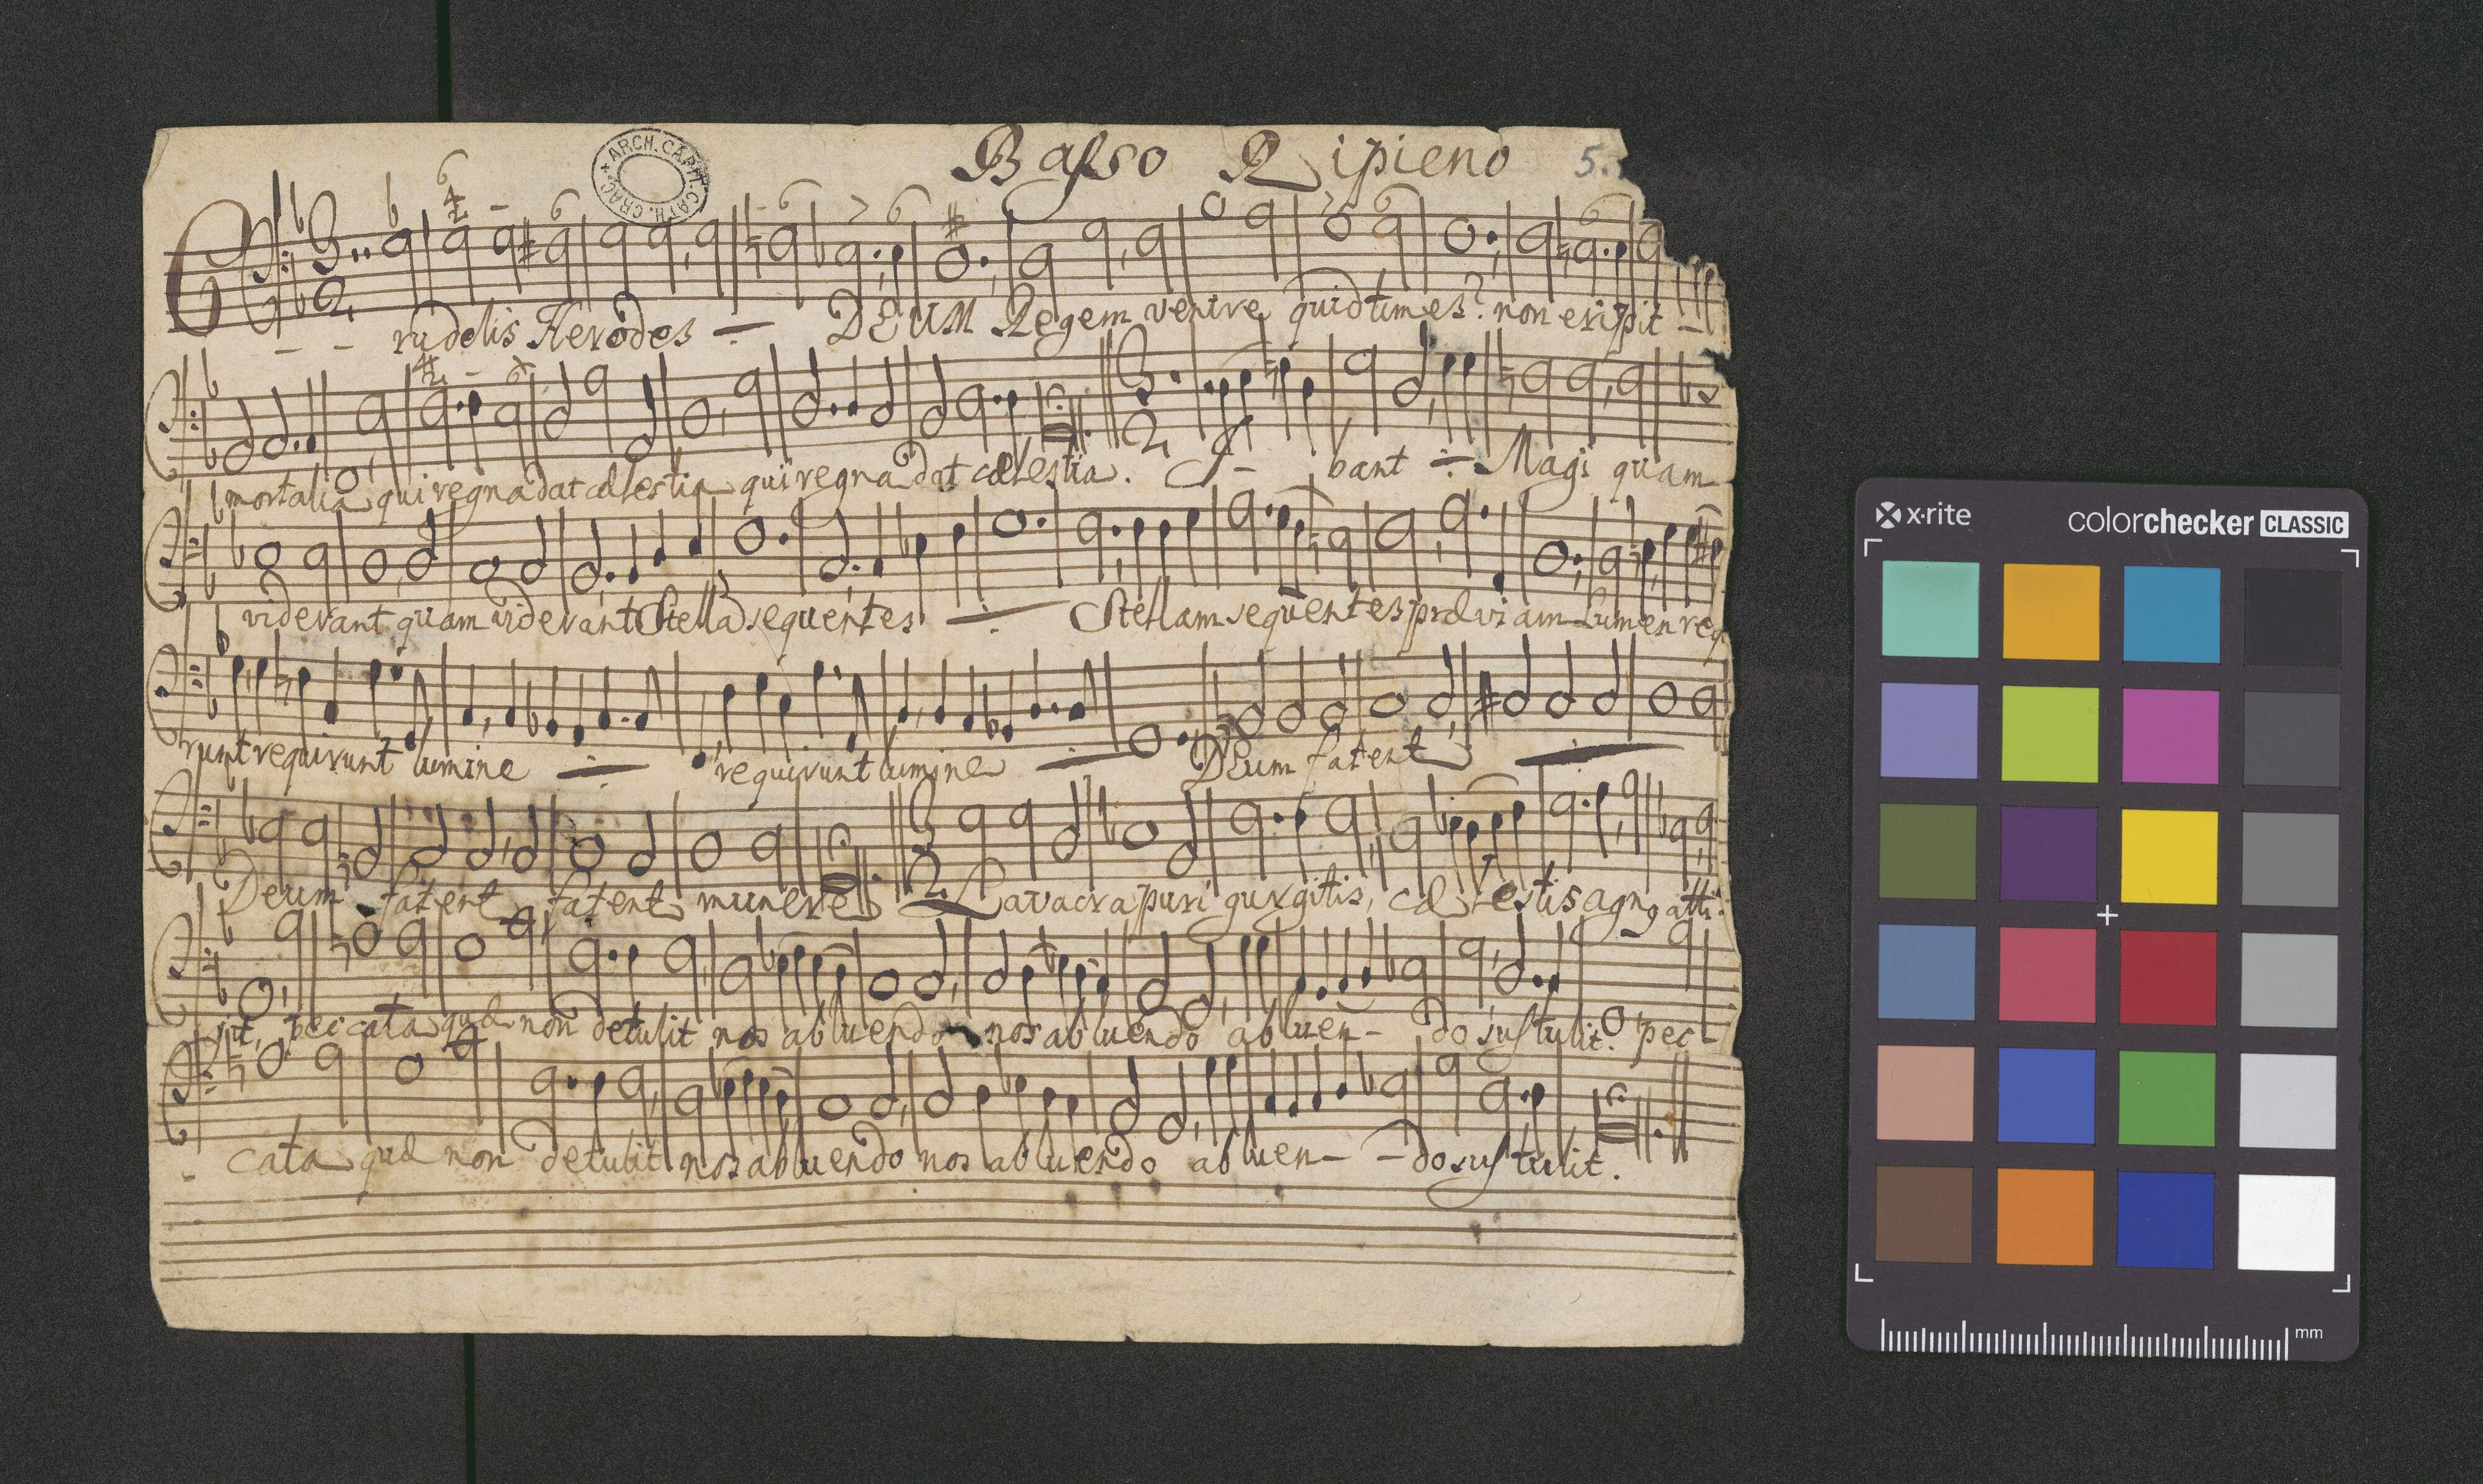 Basso Ripieno 5.
ARCH. CAPIT. CATH. CRAC.
Crudelis Herodes DEUM Regem venire quid times? non eripit
mortalia qui regna dat cælestia qui regna dat cælestia. I- bant Magi quam
viderant quam viderant Stellã sequentes Stellam sequentes præviam Lumen req
runt requirunt lumine requirunt lumine Deum fatent
Deum fatent fatent munere Lavacra puri gurgitis, cælestis agng atti-
git, peccata quæ non detulit nos abluendo nos abluendo abluen- do sustulit. pec-
cata quæ non detulit nos abluendo nos abluendo abluen- -do sustulit.
x·rite
colorchecker CLASSIC
mm